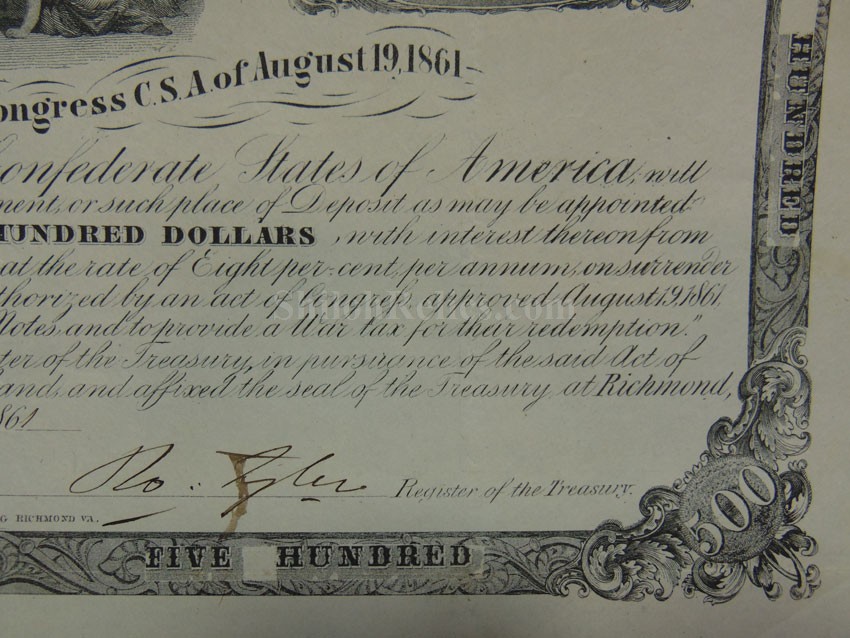 ongress C.S.A. of August 19, 1861
onfederate States of America, will
ment, or such place of Deposit as may be appointed
HUNDRED DOLLARS, with interest thereon from
at the rate of Eight per-cent, per annum, on surrender
thorized by an act of Congress, approved August 19, 1861.
Notes, and to provide a War tax for their redemption."
ter of the Treasury, in pursuance of the said Act of
and, and affixed the seal of the Treasury, at Richmond,
861
Ro: Tyler Register of the Treasury.
G RICHMOND VA.
FIVE HUNDRED
500
HUNDRED
ShilohRelics.com